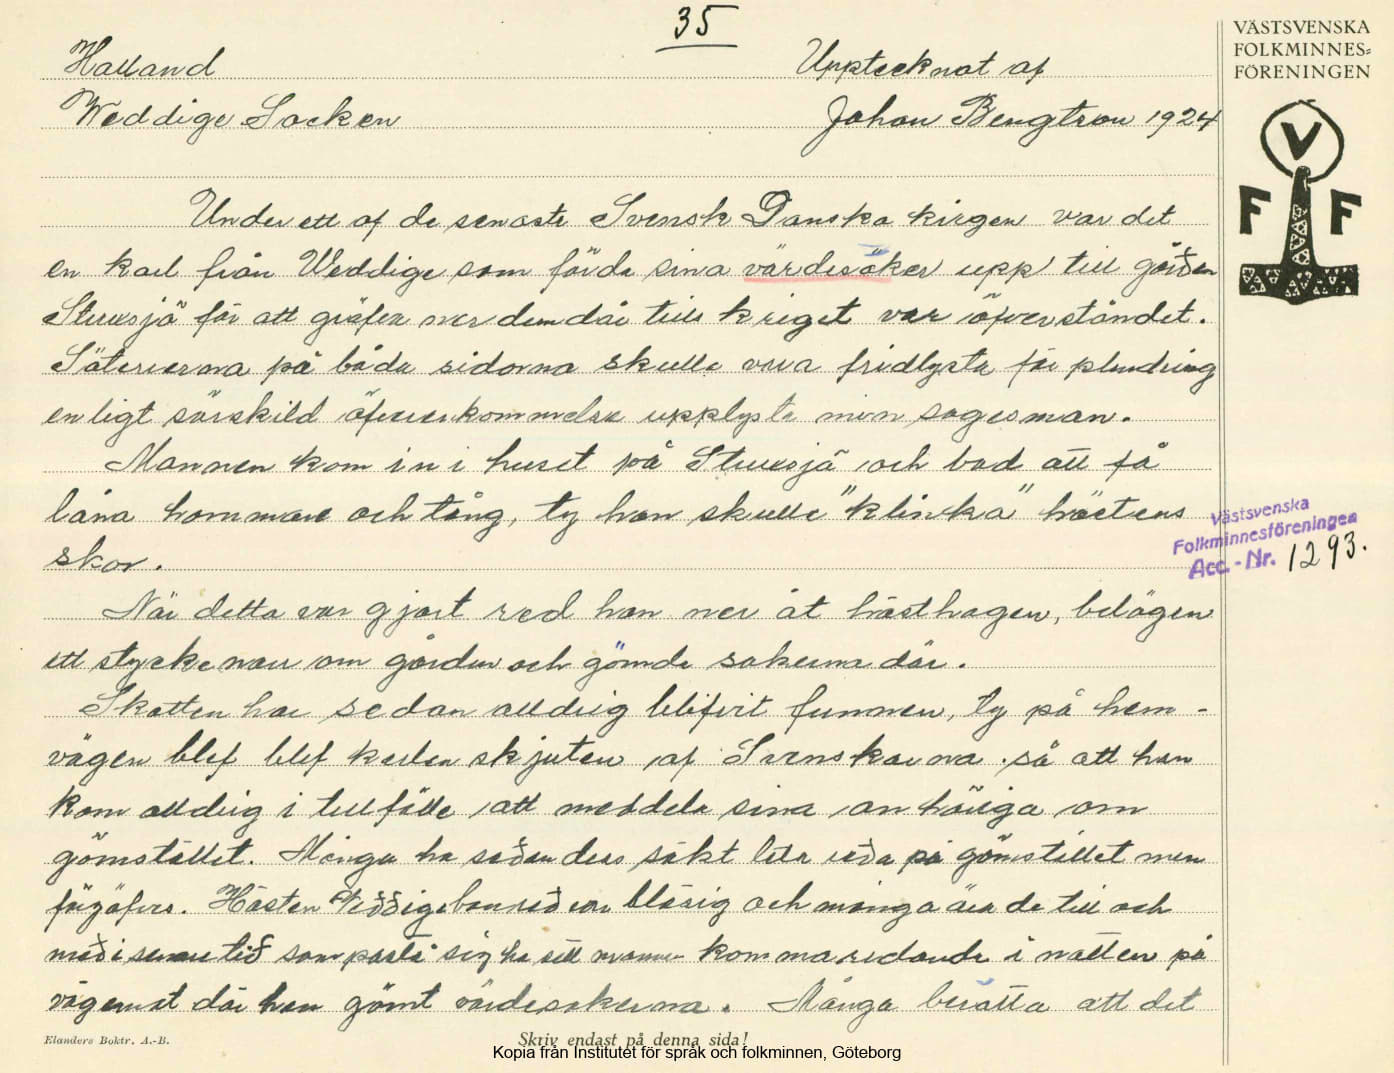 35
VÄSTSVENSKA
FOLKMINNES-
FÖRENINGEN
V
F F
Halland
Upptecknat af
Weddige Socken
Johan Bengtson 1924
Under ett af de senaste Svensk Danska kirgen var det
en karl från Weddige som förde sina värdesaker upp till gården
Stuvsjö för att gräfva ner dem där tills kriget var öfverståndet.
Säterierna på båda sidorna skulle vara fridlysta för plundring
enligt särskild öfverenkommelse upplyste min sagesman.
Mannen kom in i huset på Stuvsjö och bad att få
låna hammare och tång, ty han skulle "klinka" hästens
skor.
När detta var gjort red han ner åt hästhagen, belägen
ett stycke norr om gården och gömde sakerna där.
Skatten har sedan alldrig blifvit funnen, ty på hem-
vägen blef blef karlen skjuten af Svenskarna så att han
kom alldrig i tillfälle att meddela sina anhöriga om
gömstället. Många ha sedan dess sökt leta reda på gömstället men
förgäfves. Hästen Veddigebon red var blåsig och många äro de till och
med i senare tid som påstå sig ha sett mannen komma ridande i natten på
vägen åt där han gömt värdesakerna. Många berätta att det
Västsvenska
Folkminnesföreningen
Acc.-Nr. 1293.
Elanders Boktr. A.-B.
Skriv endast på denna sida!
Kopia från Institutet för språk och folkminnen, Göteborg